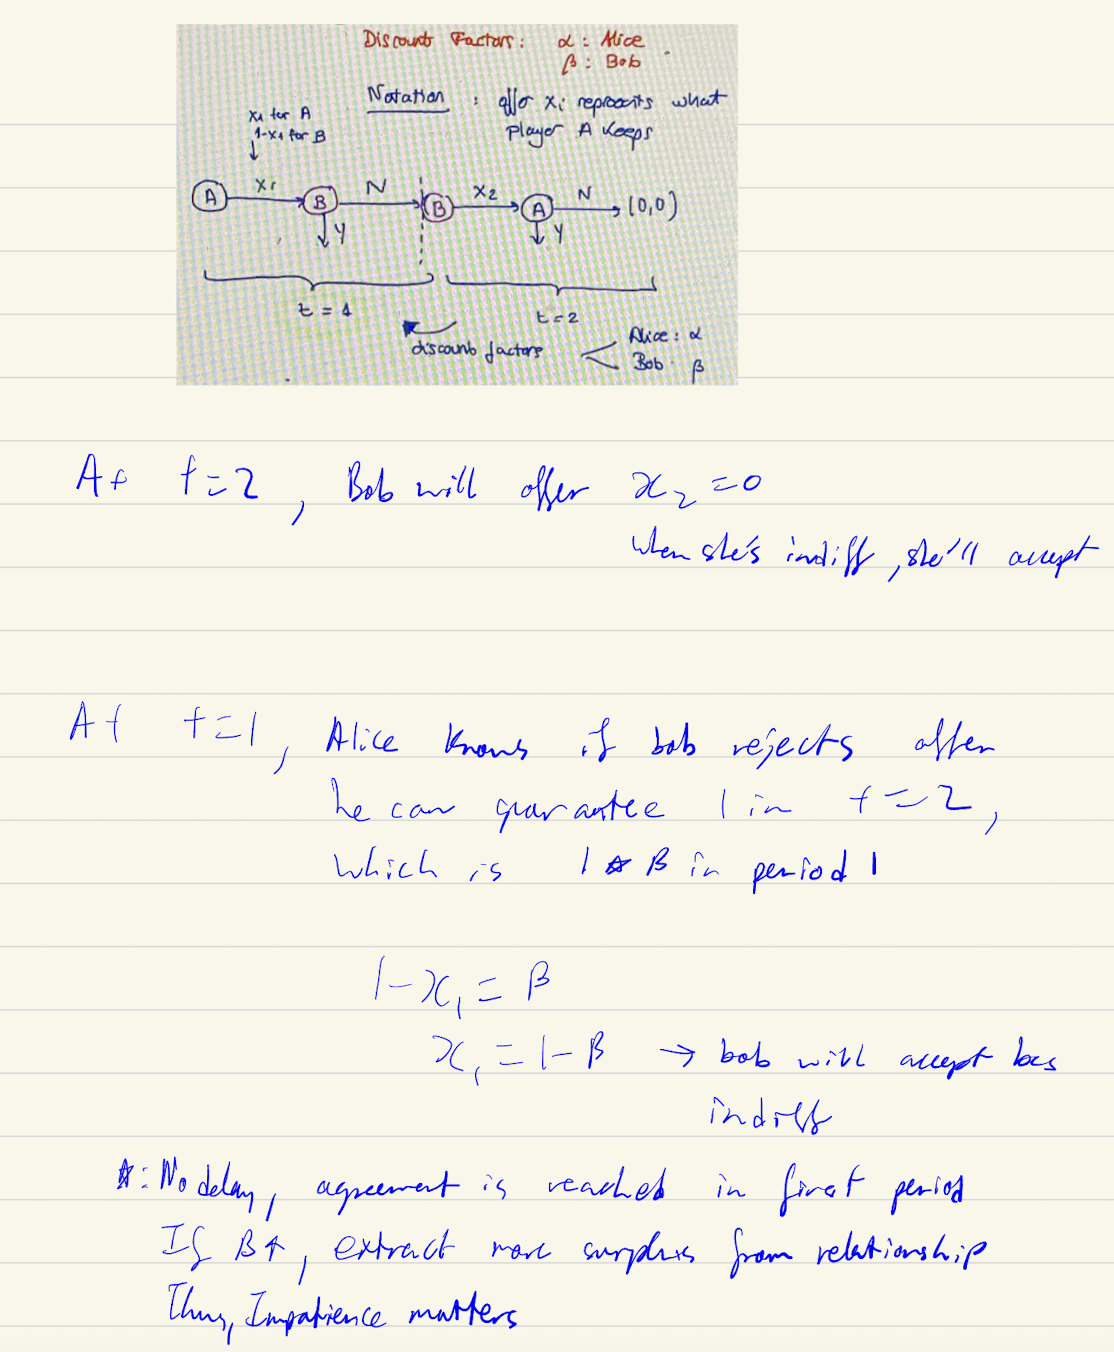 Discount Factors: α : Alice
β : Bob
Notation : offer xi represents what
player A keeps
x1 for A
1-x1 for B
A x1 B N B x2 A N (0,0)
Y Y
t = 1
t=2
discount factors
Alice : α
Bob : β
At t=2, Bob will offer x2=0
when she's indiff, she'll accept
At t=1, Alice knows if bob rejects offer
he can guarantee 1 in t=2,
which is 1 * β in period 1
1-x1 = β
x1 = 1-β → bob will accept bcs
indiff
*: No delay, agreement is reached in first period
If β↑, extract more surplus from relationship
Thus, Impatience matters